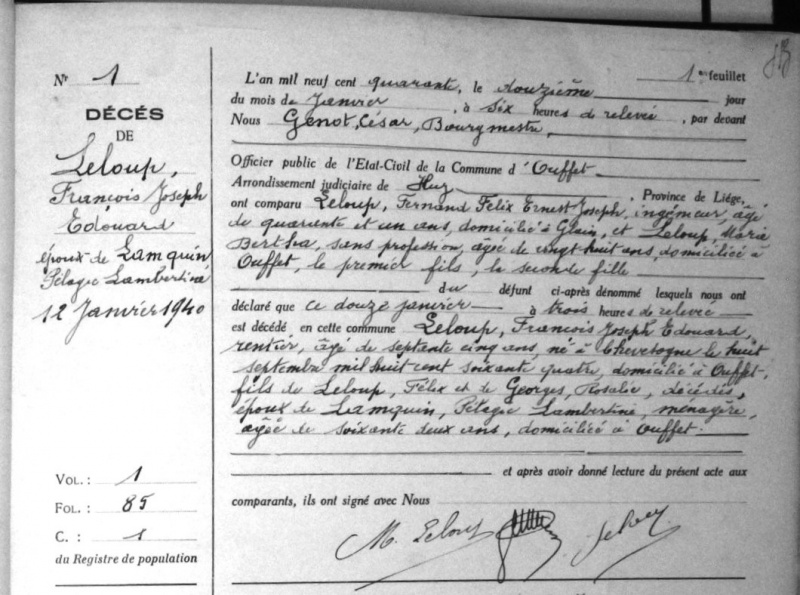 N° 1
DÉCÉS
DE
Leloup,
François Joseph
Edouard
époux de Lamquin
Pélagie Lambertine
12 Janvier 1940
VOL. : 1
FOL. : 85
C. : 1
du Registre de population
1er feuillet
L'an mil neuf cent quarante, le douzième jour
du mois de Janvier, à six heures d relevée, par devant
Nous Genot, César, Bourgmestre,
Officier public de l'Etat-Civil de la Commune d'Ouffet
Arrondissement judiciaire de Huy, Province de Liége,
ont comparu Leloup, Fernand Felix Ernest Joseph, ingénieur, âgé
de quarante et un ans, domicilié à Glain, et Leloup, Maria
Bertha, sans profession, âgée de vingt huit ans, domiciliée à
Ouffet, le premier fils, la seconde fille
du défunt ci-après dénommé lesquels nous ont
déclaré que ce douze janvier à trois heures de relevée
est décédé en cette commune Leloup, François Joseph Edouard,
rentier, âgé de septante cinq ans, né à Chevetogne le huit
septembre mil huit cent soixante quatre, domicilié à Ouffet,
fils de Leloup, Félix et de Georges, Rosalie, décédés,
époux de Lamquin, Pélagie Lambertine, ménagère,
agée de soixante deux ans, domiciliée à Ouffet.
et après avoir donné lecture du présent acte aux
comparants, ils ont signé avec Nous
M. Leloup